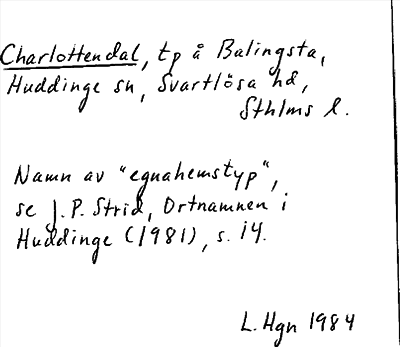 Charlottendal, tp å Balingsta,
Huddinge sn, Svartlösa hd,
Sthlms l.
Namn av "egnahemstyp",
se J.P. Strid, Ortnamnen i
Huddinge (1981), s. 14.
L. Hgn 1984